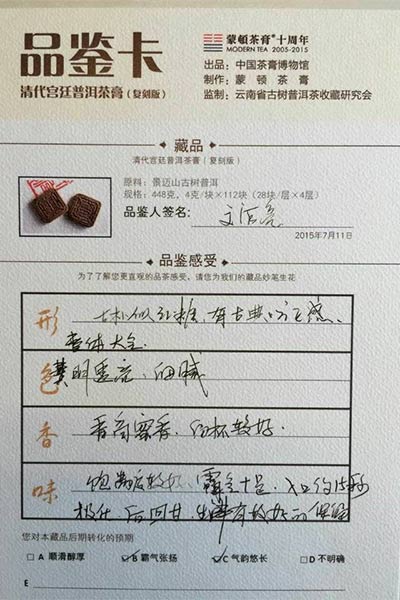 品鉴卡
清代宫廷普洱茶膏（复刻版）
蒙顿茶膏®十周年
MODERN TEA 2005-2015
出品：中国茶膏博物馆
制作：蒙顿茶膏
监制：云南省古树普洱茶收藏研究会
藏品
清代宫廷普洱茶膏（复刻版）
原料：景迈山古树普洱
规格：448克，4克/块×112块（28块/层×4层）
品鉴人签名：
2015年7月11日
品鉴感受
为了了解您更直观的品茶感受，请您为我们的藏品妙笔生花
形 有古典方正感、
色 黄明透亮、细腻
香 香高蜜香、
味 饱满度较好、霸气十足、入口约15秒
后回甘
您对本藏品后期转化的预期
A 顺滑醇厚 B 霸气张扬 C 气韵悠长 D 不明确
E